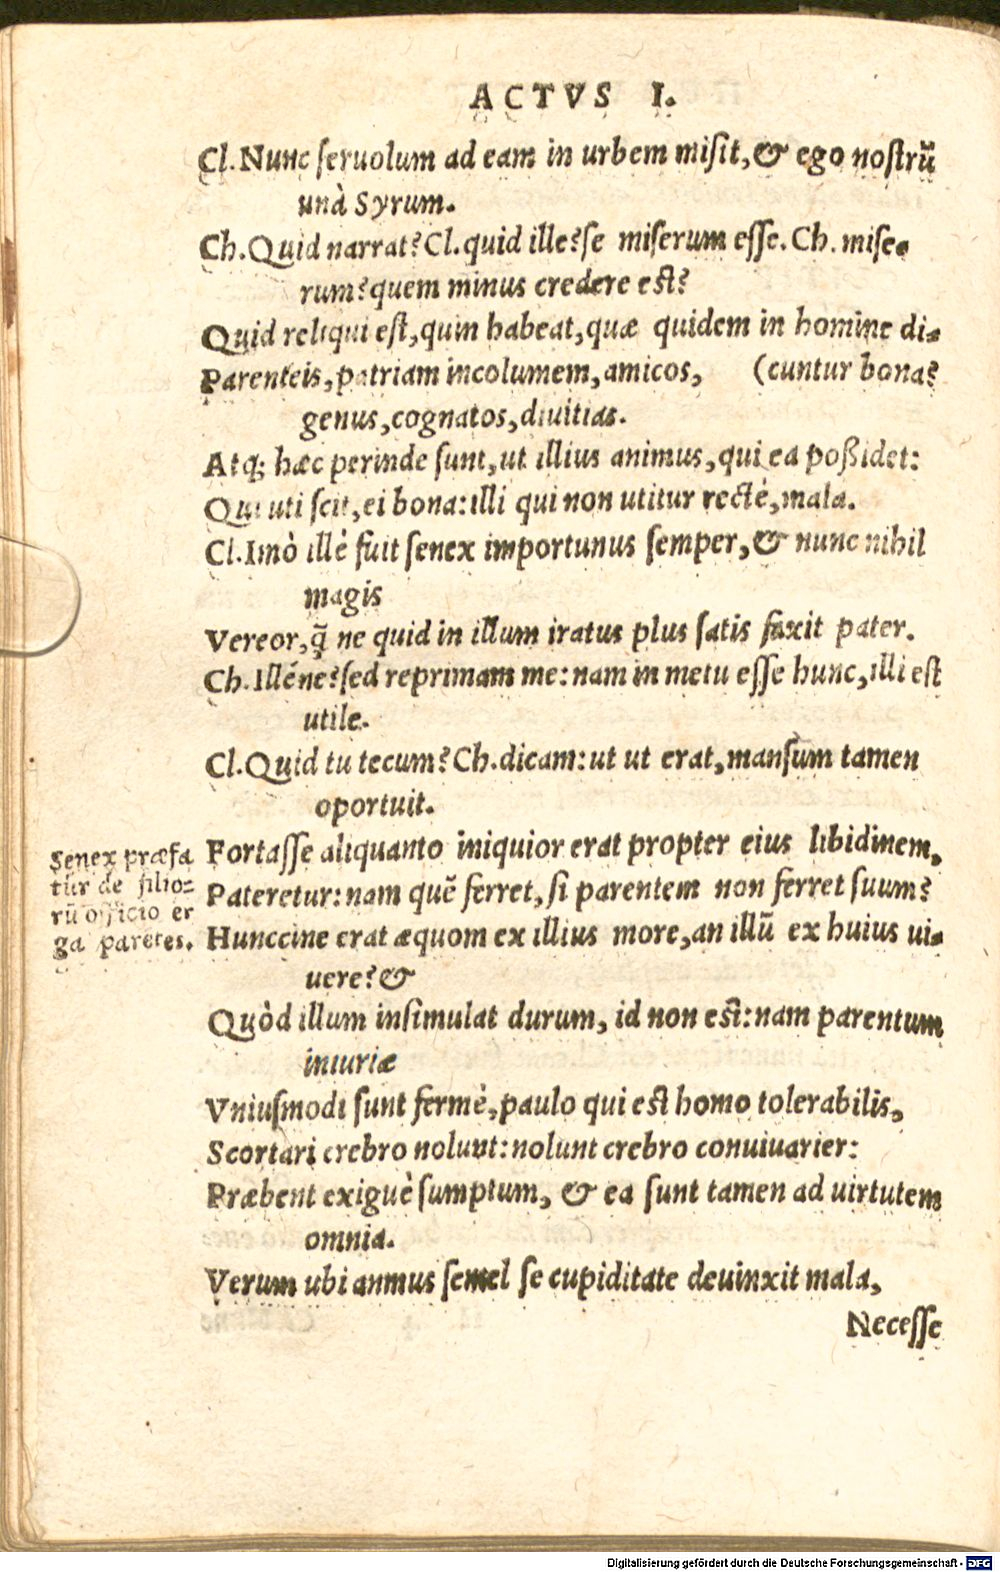 ACTVS I.
Cl. Nunc seruolum ad eam in urbem misit, & ego nostrũ
unà Syrum.
Ch. Quid narrat? Cl. quid ille? se miserum esse. Ch. mise-
rum? quem minus credere est?
Quid reliqui est, quin habeat, quæ quidem in homine di-
Parenteis, patriam incolumem, amicos, (cuntur bona?
genus, cognatos, diuitias.
Atq; hæc perinde sunt, ut illius animus, qui ea poßidet:
Qui uti scit, ei bona: illi qui non utitur rectè, mala.
Cl. Imò illè fuit senex importunus semper, & nunc nihil
magis
Vereor, q̃ ne quid in illum iratus plus satis faxit pater.
Ch. Illéne? sed reprimam me: nam in metu esse hunc, illi est
utile.
Cl. Quid tu tecum? Ch. dicam: ut ut erat, mansum tamen
oportuit.
Fortasse aliquanto iniquior erat propter eius libidinem,
Pateretur: nam quẽ ferret, si parentem non ferret suum?
Hunccine erat æquom ex illius more, an illũ ex huius ui-
uere? &
Quòd illum insimulat durum, id non est: nam parentum
iniuriæ
Vniusmodi sunt fermè, paulo qui est homo tolerabilis,
Scortari crebro nolunt: nolunt crebro conuiuarier:
Præbent exiguè sumptum, & ea sunt tamen ad uirtutem
omnia.
Verum ubi anmus semel se cupiditate deuinxit mala,
Necesse
Senex præfa
tur de filio-
rũ officio er
ga parẽtes.
Digitalisierung gefördert durch die Deutsche Forschungsgemeinschaft - DFG